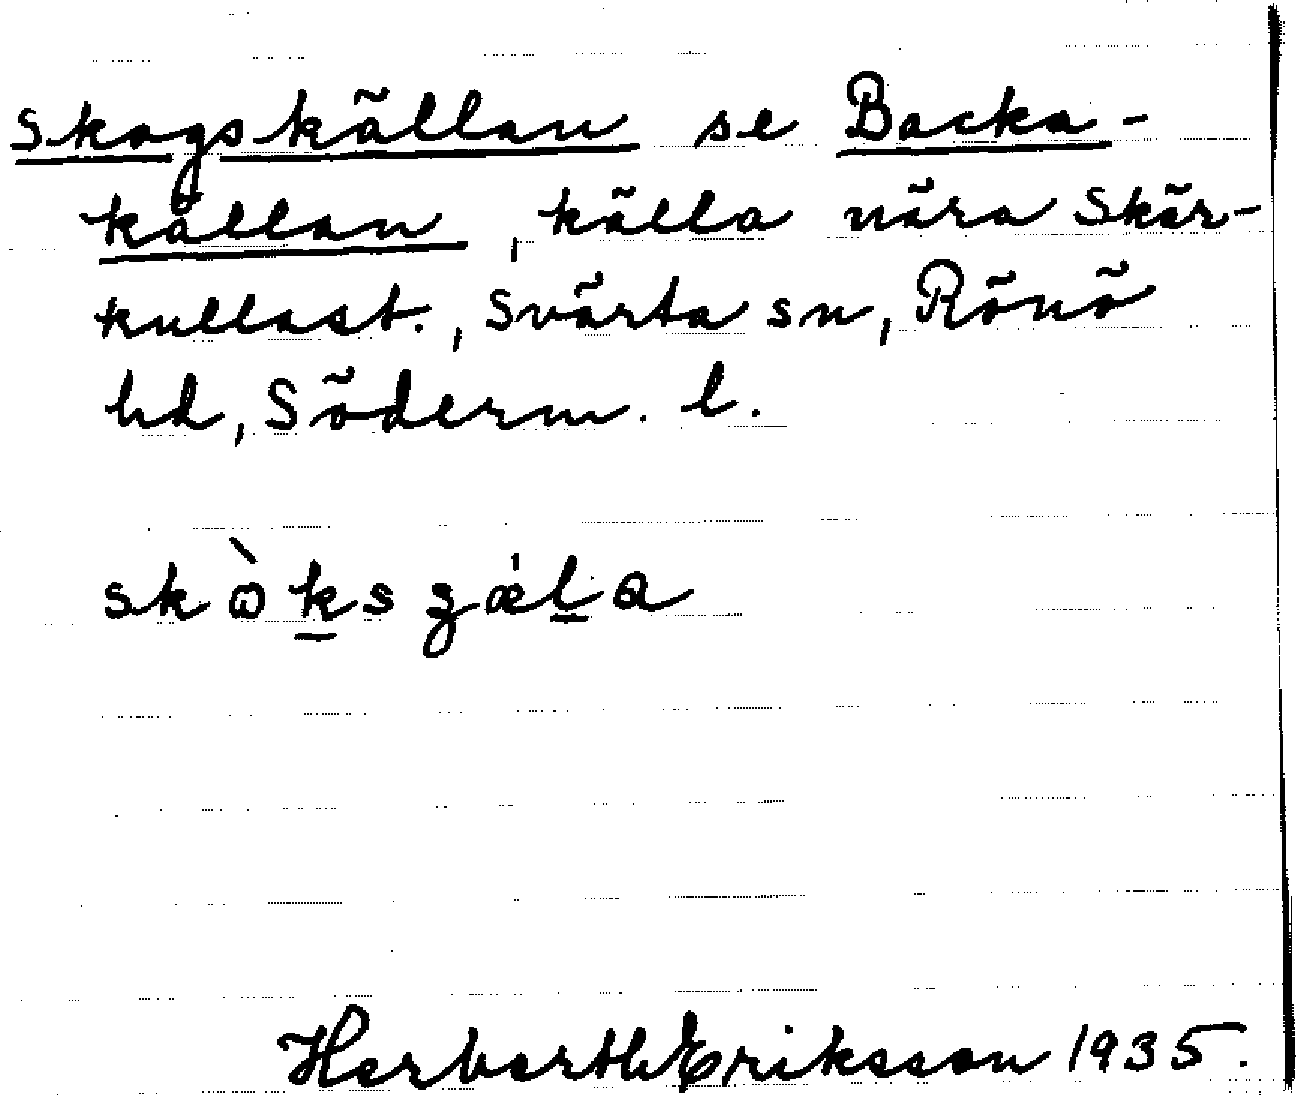 Skogskällan se Backa-
källan, källa nära Skär-
kullast., Svärta sn, Rönö
hd, Söderm. l.
Herberth Eriksson 1935.